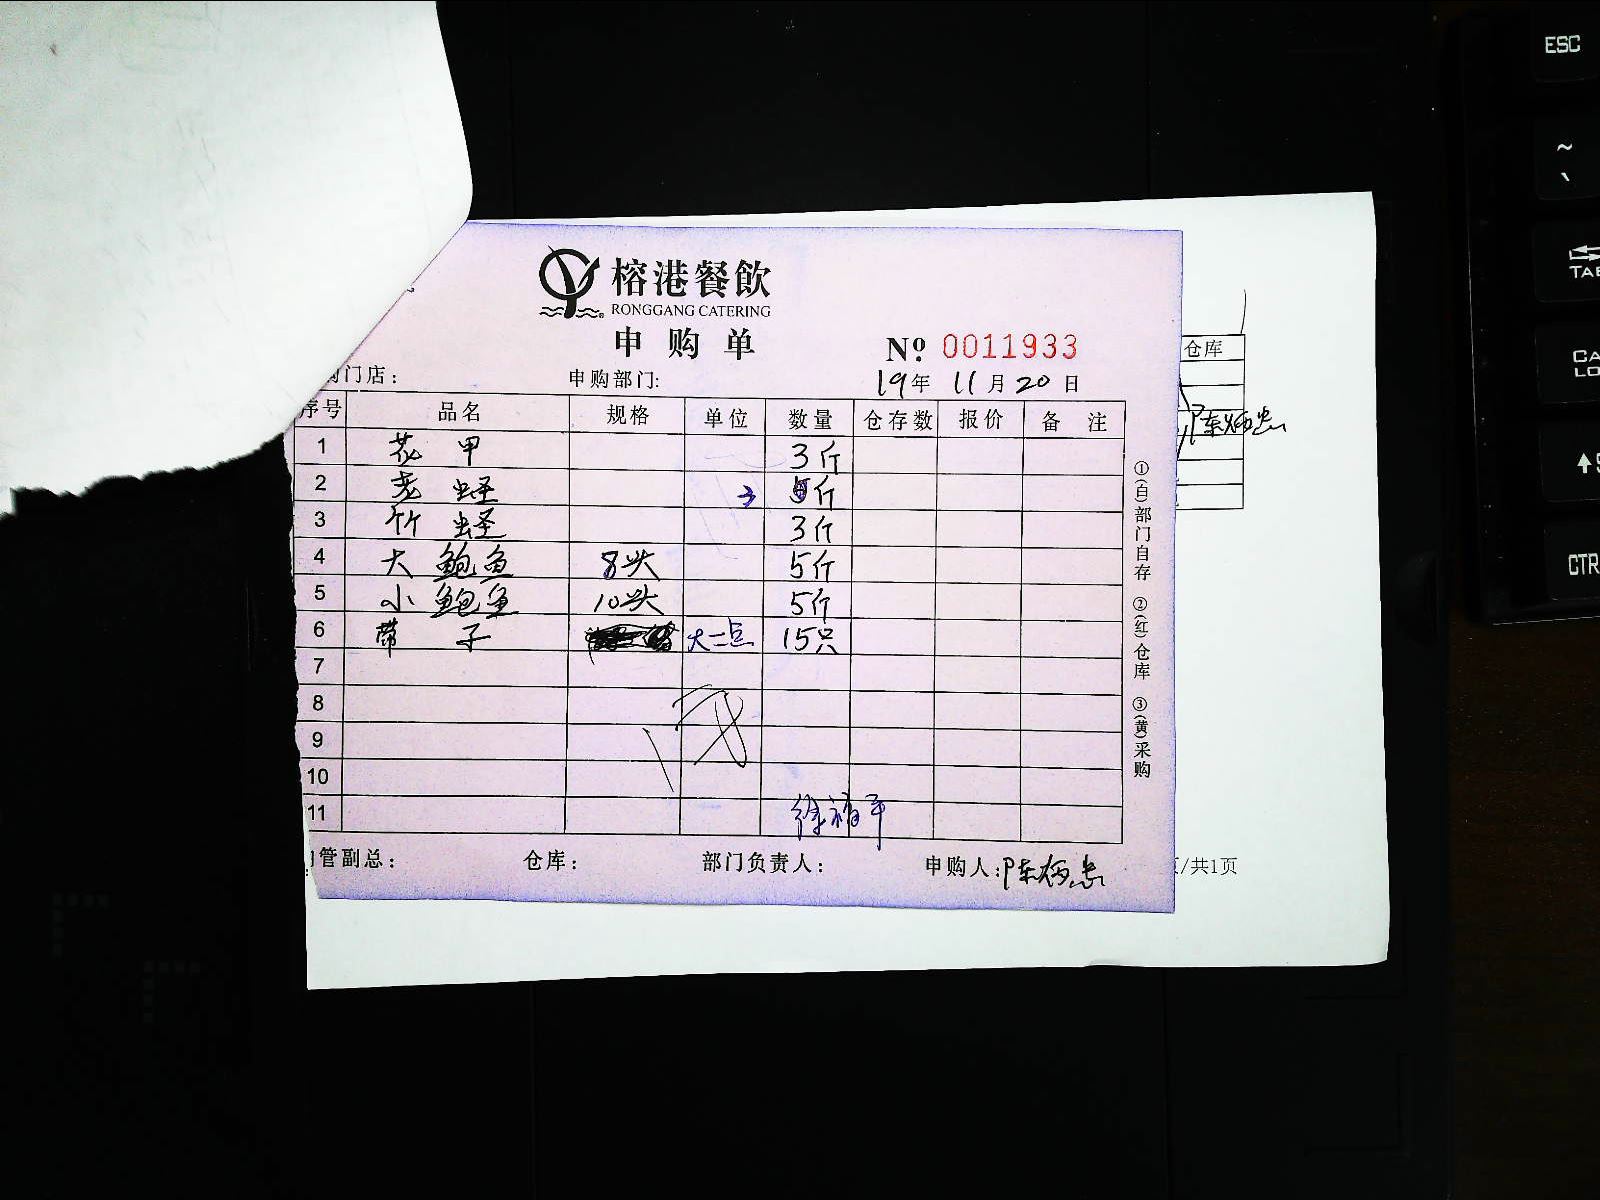 榕港餐飲
RONGGANG CATERING
申购单
№ 0011933
门店： 申购部门: 19年 11月20日
序号 品名 规格 单位 数量 仓存数 报价 备 注
1 花甲 3斤
2 老蛏 3 斤
3 竹蛏 3斤
4 大鲍鱼 8头 5斤
5 小鲍鱼 10头 5斤
6 带子 大一点 15只
7
8
9
10
11
管副总： 仓库： 部门负责人： 申购人:
①(自)部门自存 ②(红)仓库 ③(黄)采购
仓库
/共1页
ESC
~
TAB
CA
LO
CTR